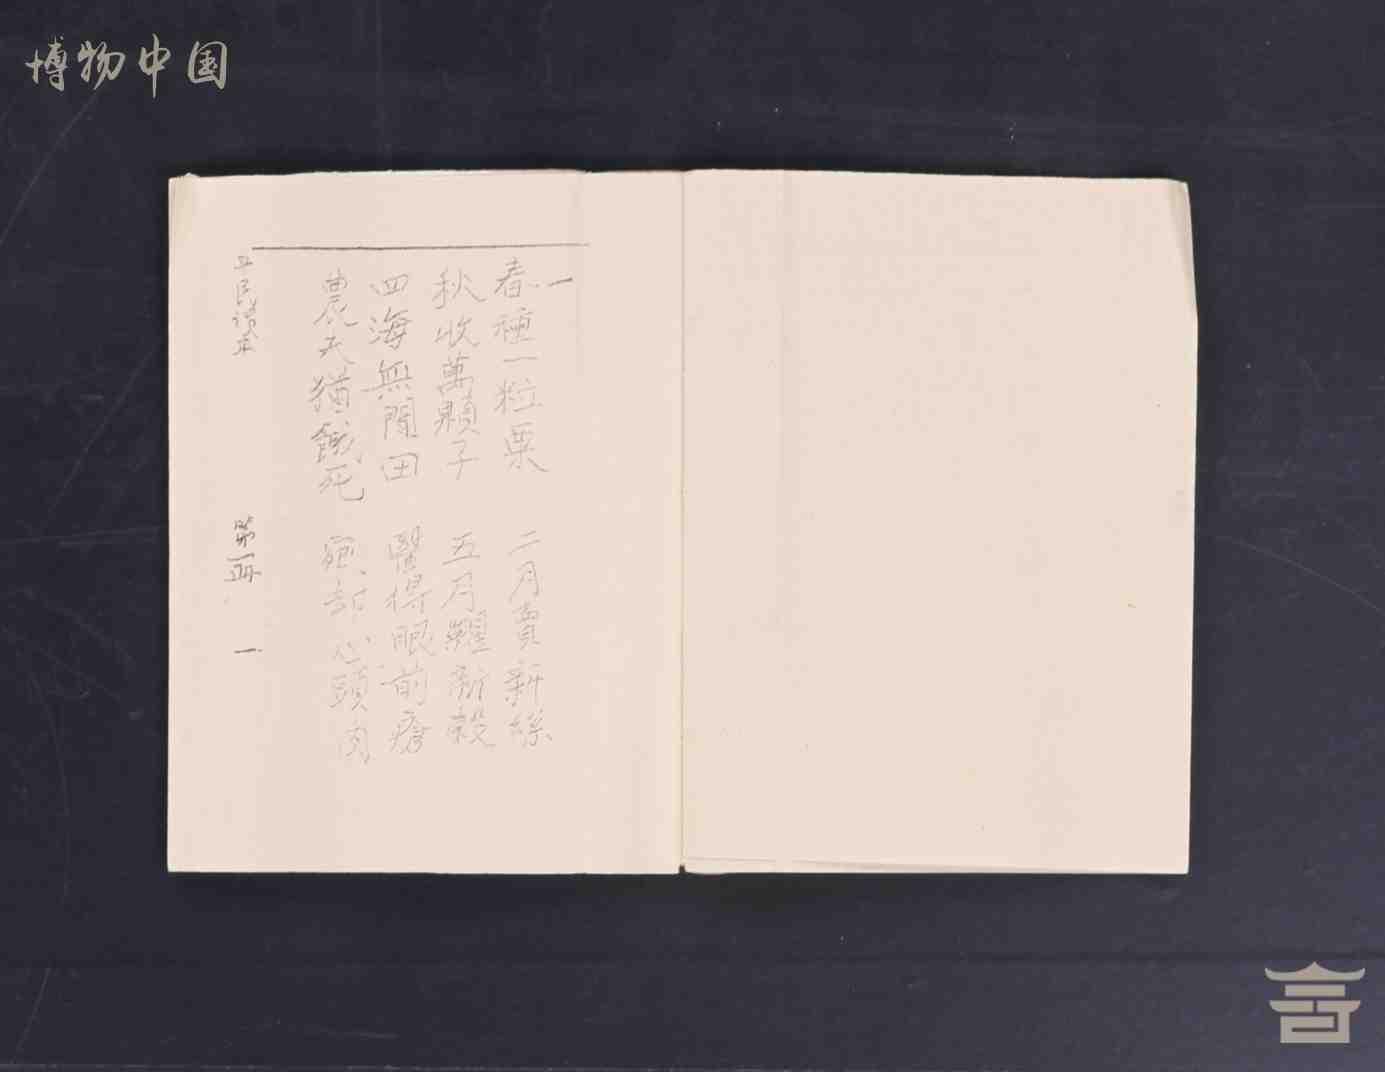 博物中国
一
春種一粒粟
秋收萬顆子
四海無閒田
農夫猶餓死
二月賣新絲
五月糶新穀
醫得眼前瘡
剜却心頭肉
平民讀本
第一冊
一